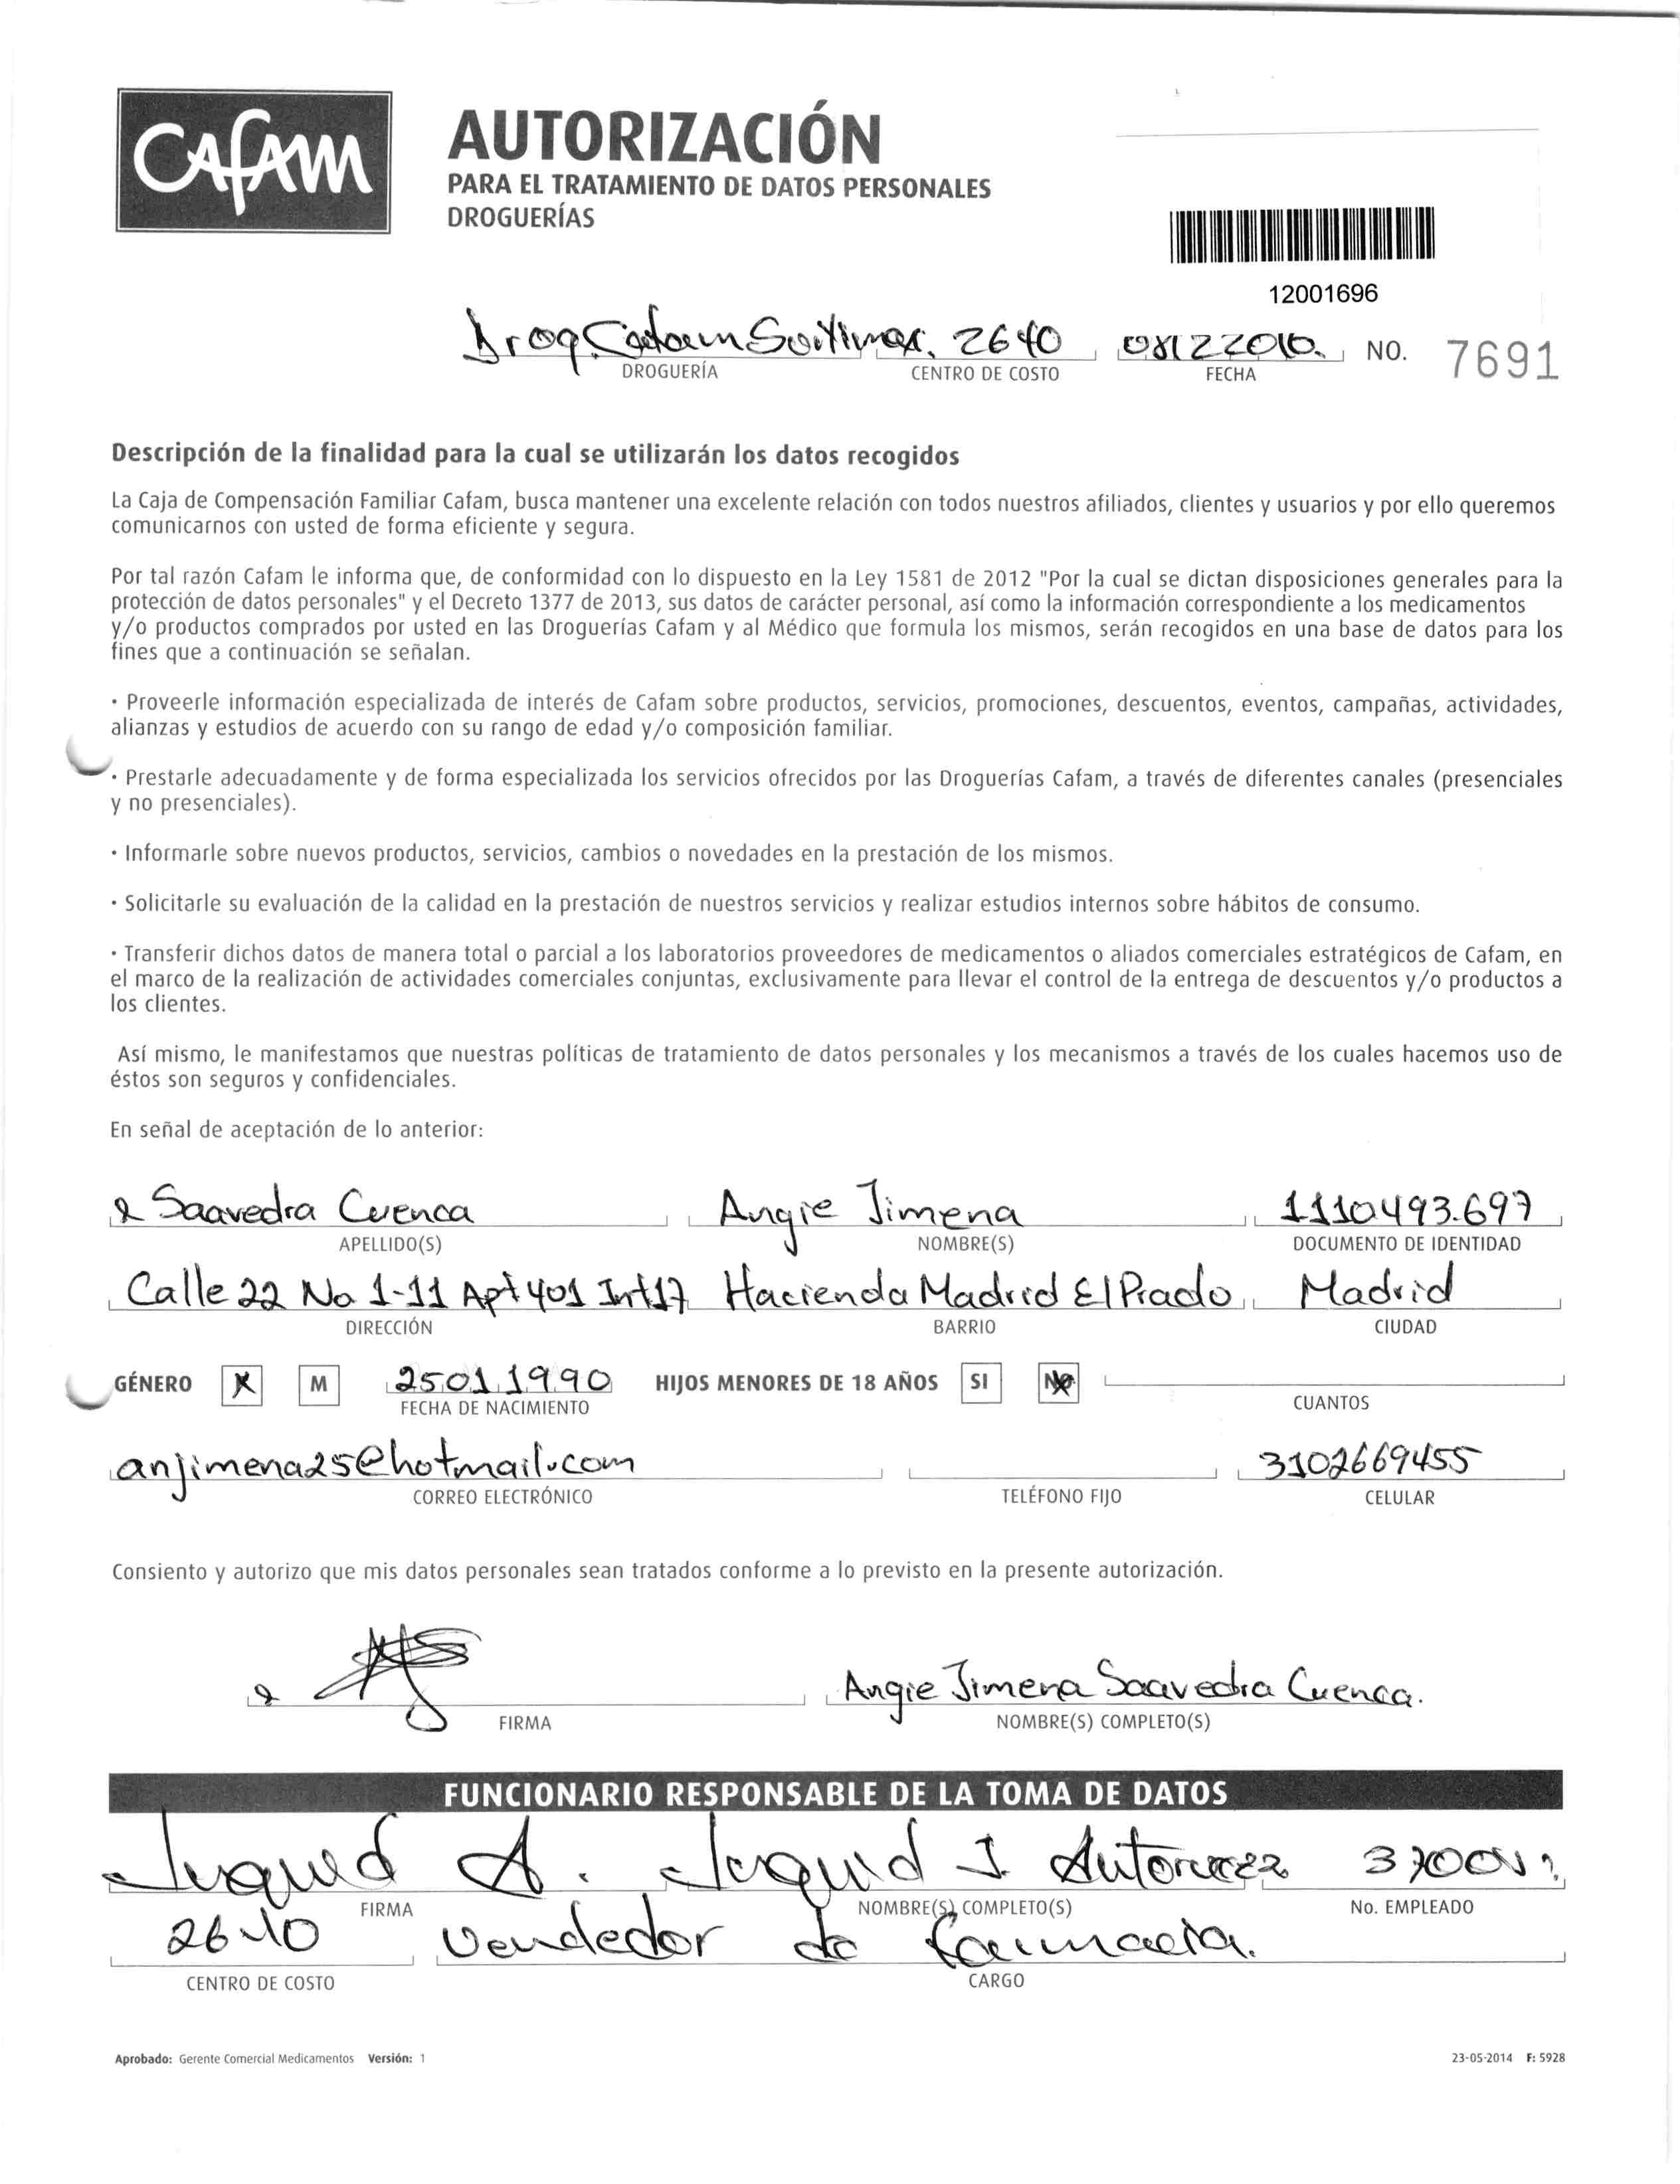 Cafam
AUTORIZACIÓN
PARA EL TRATAMIENTO DE DATOS PERSONALES
DROGUERÍAS
12001696
Drog Cafam 2640 08122016. NO. 7691
DROGUERÍA CENTRO DE COSTO FECHA
Descripción de la finalidad para la cual se utilizarán los datos recogidos
La Caja de Compensación Familiar Cafam, busca mantener una excelente relación con todos nuestros afiliados, clientes y usuarios y por ello queremos
comunicarnos con usted de forma eficiente y segura.
Por tal razón Cafam le informa que, de conformidad con lo dispuesto en la Ley 1581 de 2012 "Por la cual se dictan disposiciones generales para la
protección de datos personales" y el Decreto 1377 de 2013, sus datos de carácter personal, así como la información correspondiente a los medicamentos
y/o productos comprados por usted en las Droguerías Cafam y al Médico que formula los mismos, serán recogidos en una base de datos para los
fines que a continuación se señalan.
· Proveerle información especializada de interés de Cafam sobre productos, servicios, promociones, descuentos, eventos, campañas, actividades,
alianzas y estudios de acuerdo con su rango de edad y/o composición familiar.
· Prestarle adecuadamente y de forma especializada los servicios ofrecidos por las Droguerías Cafam, a través de diferentes canales (presenciales
y no presenciales).
· Informarle sobre nuevos productos, servicios, cambios o novedades en la prestación de los mismos.
· Solicitarle su evaluación de la calidad en la prestación de nuestros servicios y realizar estudios internos sobre hábitos de consumo.
· Transferir dichos datos de manera total o parcial a los laboratorios proveedores de medicamentos o aliados comerciales estratégicos de Cafam, en
el marco de la realización de actividades comerciales conjuntas, exclusivamente para llevar el control de la entrega de descuentos y/o productos a
los clientes.
Así mismo, le manifestamos que nuestras políticas de tratamiento de datos personales y los mecanismos a través de los cuales hacemos uso de
éstos son seguros y confidenciales.
En señal de aceptación de lo anterior:
Saavedra Cuenca Angie Jimena 1110493.697
APELLIDO(S) NOMBRE(S) DOCUMENTO DE IDENTIDAD
Calle 22 No 1-11 Apt 401 Int17 Hacienda Madrid El Prado Madrid
DIRECCIÓN BARRIO CIUDAD
GÉNERO X M 25011990 HIJOS MENORES DE 18 AÑOS SI NO
FECHA DE NACIMIENTO CUANTOS
anjimena25@hotmail.com 3102669455
CORREO ELECTRÓNICO TELÉFONO FIJO CELULAR
Consiento y autorizo que mis datos personales sean tratados conforme a lo previsto en la presente autorización.
Angie Jimena Saavedra Cuenca.
FIRMA NOMBRE(S) COMPLETO(S)
FUNCIONARIO RESPONSABLE DE LA TOMA DE DATOS
A. J.
FIRMA NOMBRE(S) COMPLETO(S) No. EMPLEADO
2640 Vendedor de farmacia.
CENTRO DE COSTO CARGO
Aprobado: Gerente Comercial Medicamentos Versión: 1 23-05-2014 F: 5928